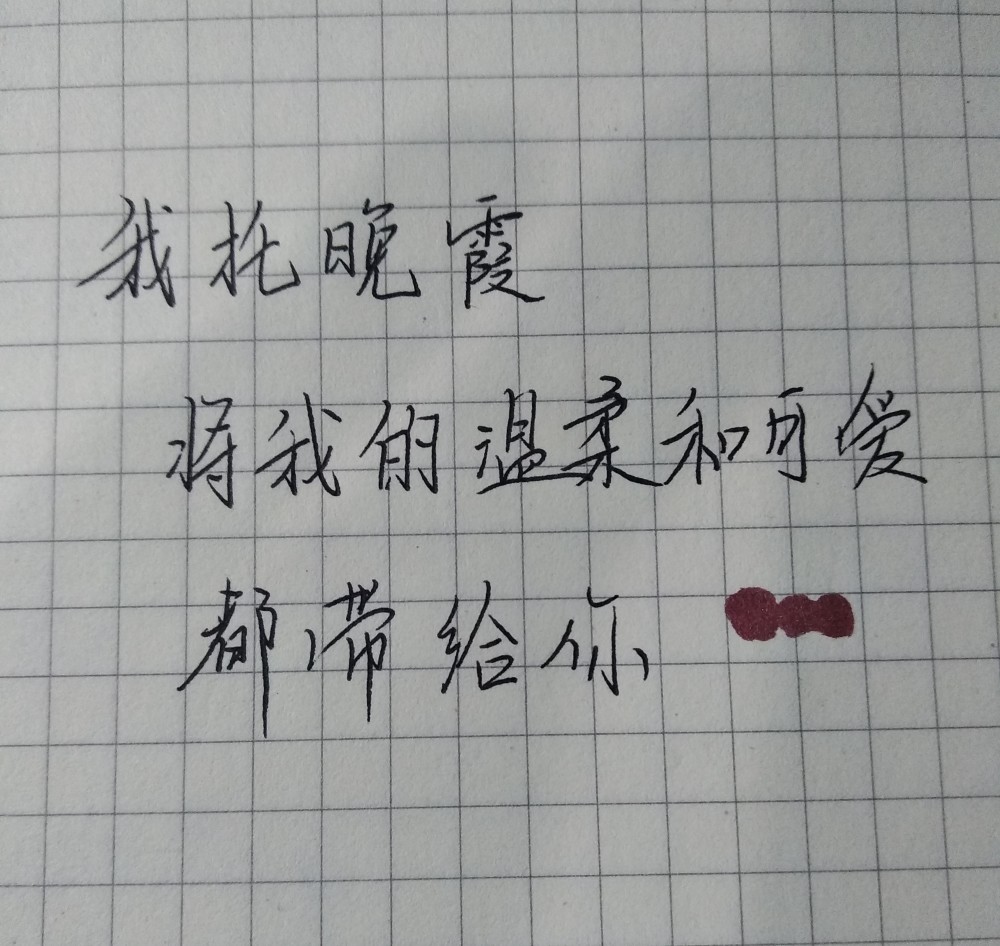 我托晚霞
将我的温柔和可爱
都滞给你